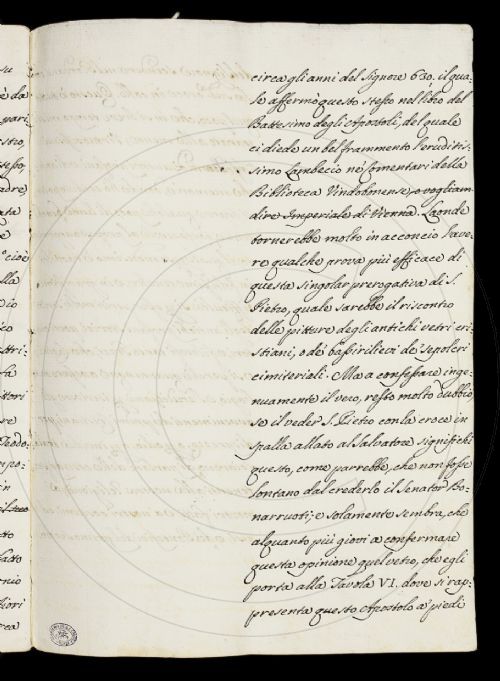 su
è da
pari
stro,
stesso,
adre
ata
e
° cioè
lla
io
co
ttri-
fa
ttori
ve
Teodo-
mpo-
in
tto
fatto
rnio
fiori
rea
circa gli anni del Signore 630. il qua-
le affermò questo stesso nel libro del
Battesimo degli Apostoli, del quale
ci diede un bel frammento l'eruditis-
simo Lambecio ne' Comentari della
Biblioteca Vindobonense, o vogliam
dire Imperiale di Vienna. Laonde
tornerebbe molto in acconcio l'ave-
re qualche prova più efficace di
questa singolar prerogativa di S.
Pietro, quale sarebbe il riscontro
delle pitture degli antichi vetri cri-
stiani, o de' bassirilievi de' sepolcri
cimiteriali. Ma a confessare inge-
nuamente il vero, resto molto dubbio,
se il veder S. Pietro con la croce in
spalla allato al Salvatore significhi
questo, come parrebbe, che non fosse
lontano dal crederlo il Senator Bo-
narruoti; e solamente sembra, che
alquanto più giovi a confermare
questa opinione quel vetro, che egli
porta alla Tavola VI. dove si rap-
presenta questo Apostolo a' piedi